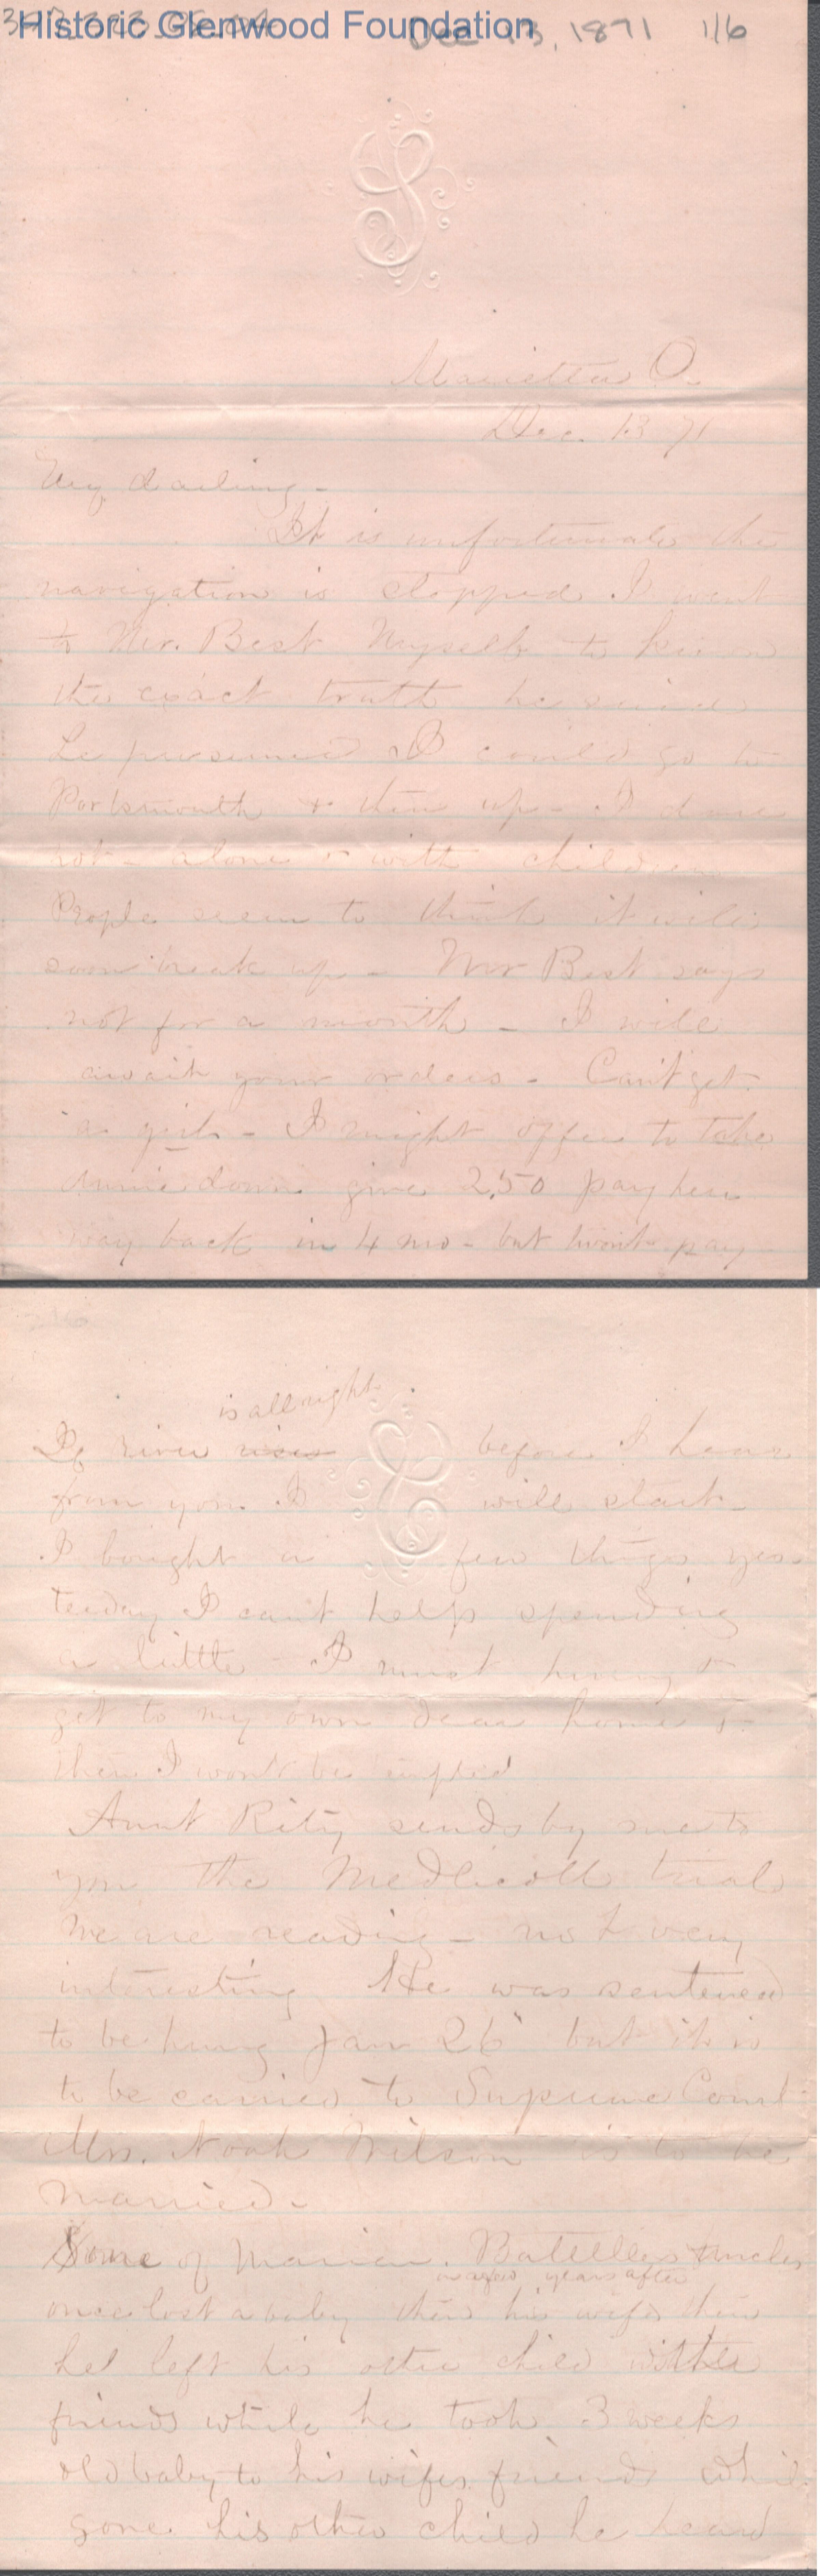 Historic Glenwood Foundation
Dec 13, 1871 1/6
Marietta O.
Dec. 13 71
My darling -
It is unfortunate the
navigation is stopped I went
to Mr. Best Myself to know
the exact truth he said
he presumed I could go to
Portsmouth & then up - I dare
not - alone & with children
People seem to think it will
soon break up - Mr Best says
not for a month - I will
await your orders - Can't get
a girl - I might offer to take
Annie down give 2.50 pay her
way back in 4 mo - but won't pay
2/6
is all right
If river rises before I hear
from you I will start -
I bought a few things yes-
terday I cant help spending
a little - I must hurry &
get to my own dear home &
then I wont be tempted
Aunt Rity sends by me to
you the Medlicott trial
We are reading - not very
interesting He was sentenced
to be hung Jan 26" but it is
to be carried to Supreme Court
Mrs. Noah Wilson is to be
married -
Some of Marian Batelles uncles
a few years after
once lost a baby then his wife then
he left his other child with
friends while he took 3 weeks
old baby to his wifes friends while
gone his other child he heard